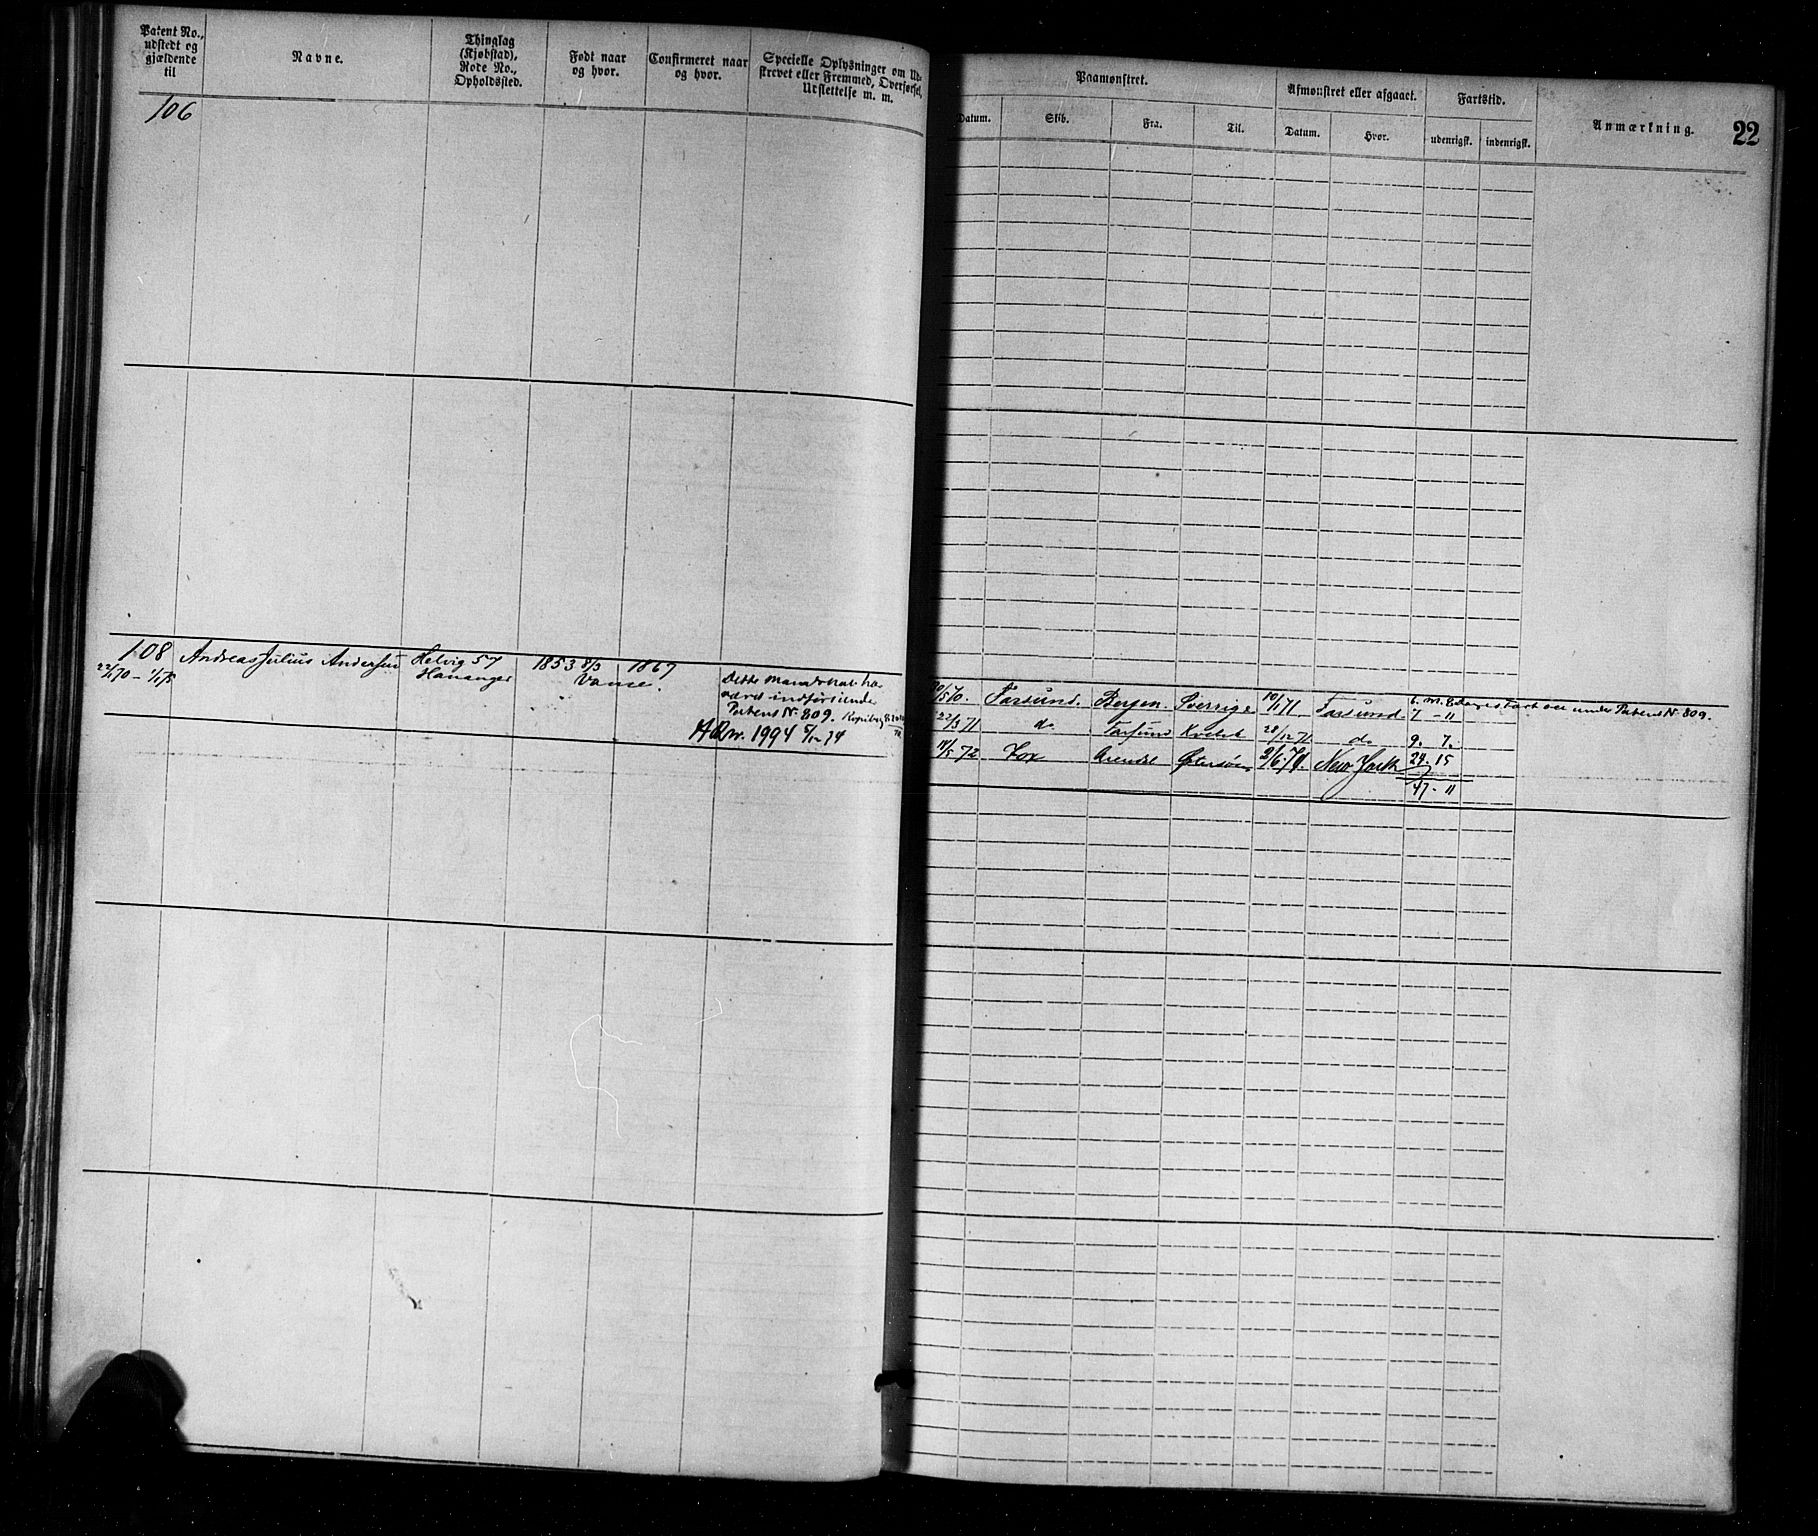 Patent No.,
udstedt og
gjældende
til
Navne.
Thinglag
(Kjøbstad),
Rode No.,
Opholdssted.
Født naar
og hvor.
Confirmeret naar
og hvor.
Specielle Oplysninger om Ud-
skrevet eller Fremmed, Overførsel,
Udslettelse m. m.
106
108
22/4 70 – 1/1 75
Andreas Julius Andersen
Helvig 57
Hananger
1853 8/3
1867
Vanse.
Dette Mandskab har
været indført under
Patent Nr 809.
ARw. 1994 5/12 74
Paamønstret.
Afmønstret eller afgaaet.
Fartstid.
Anmærkning.
22
Datum.
Skib.
Fra.
Til.
Datum.
Hvor.
udenrigsk.
indenrigsk.
6. M. 8 Dages Fart over under Patent Nr 809.
/5 70. Farsund. Bergen. Sverrige 10/1 71. Farsund. 7 – 11
22/3 71 do Farsund 28/12 71. do 9. 7.
11/5 72 Fox Arendal Østersøen 2/6. 74. New York 24. 15
47 – 11